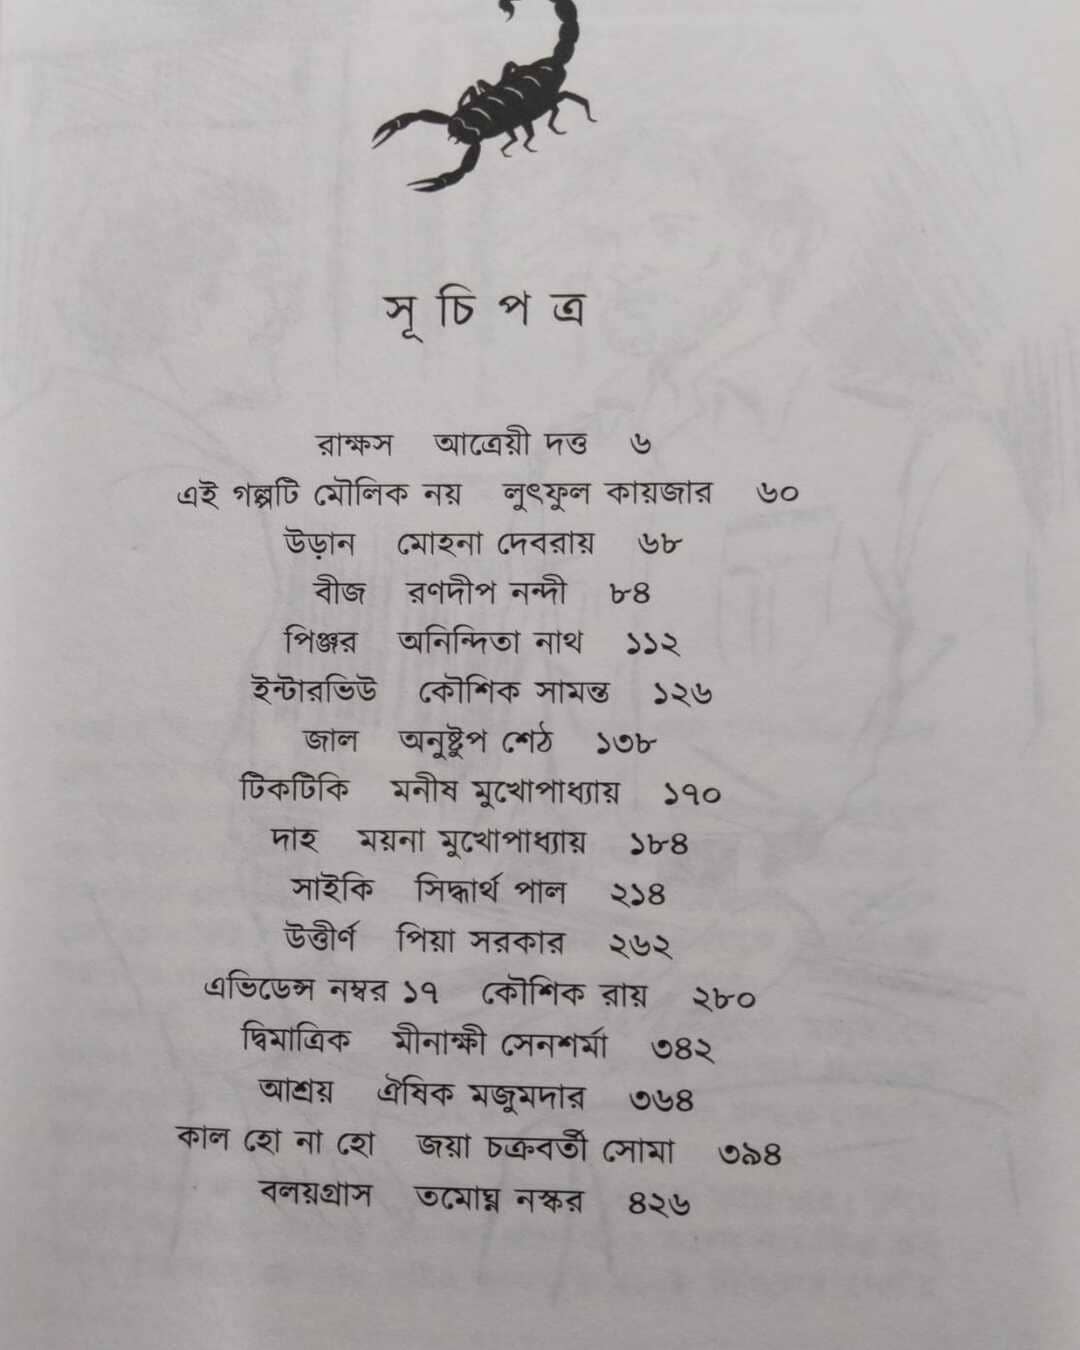 সূচিপত্র
রাক্ষস আত্রেয়ী দত্ত ৬
এই গল্পটি মৌলিক নয় লুৎফুল কায়জার ৬০
উড়ান মোহনা দেবরায় ৬৮
বীজ রণদীপ নন্দী ৮৪
পিঞ্জর অনিন্দিতা নাথ ১১২
ইন্টারভিউ কৌশিক সামন্ত ১২৬
জাল অনুষ্টুপ শেঠ ১৩৮
টিকটিকি মনীষ মুখোপাধ্যায় ১৭০
দাহ ময়না মুখোপাধ্যায় ১৮৪
সাইকি সিদ্ধার্থ পাল ২১৪
উত্তীর্ণ পিয়া সরকার ২৬২
এভিডেন্স নম্বর ১৭ কৌশিক রায় ২৮০
দ্বিমাত্রিক মীনাক্ষী সেনশর্মা ৩৪২
আশ্রয় ঐষিক মজুমদার ৩৬৪
কাল হো না হো জয়া চক্রবর্তী সোমা ৩৯৪
বলয়গ্রাস তমোঘ্ন নস্কর ৪২৬